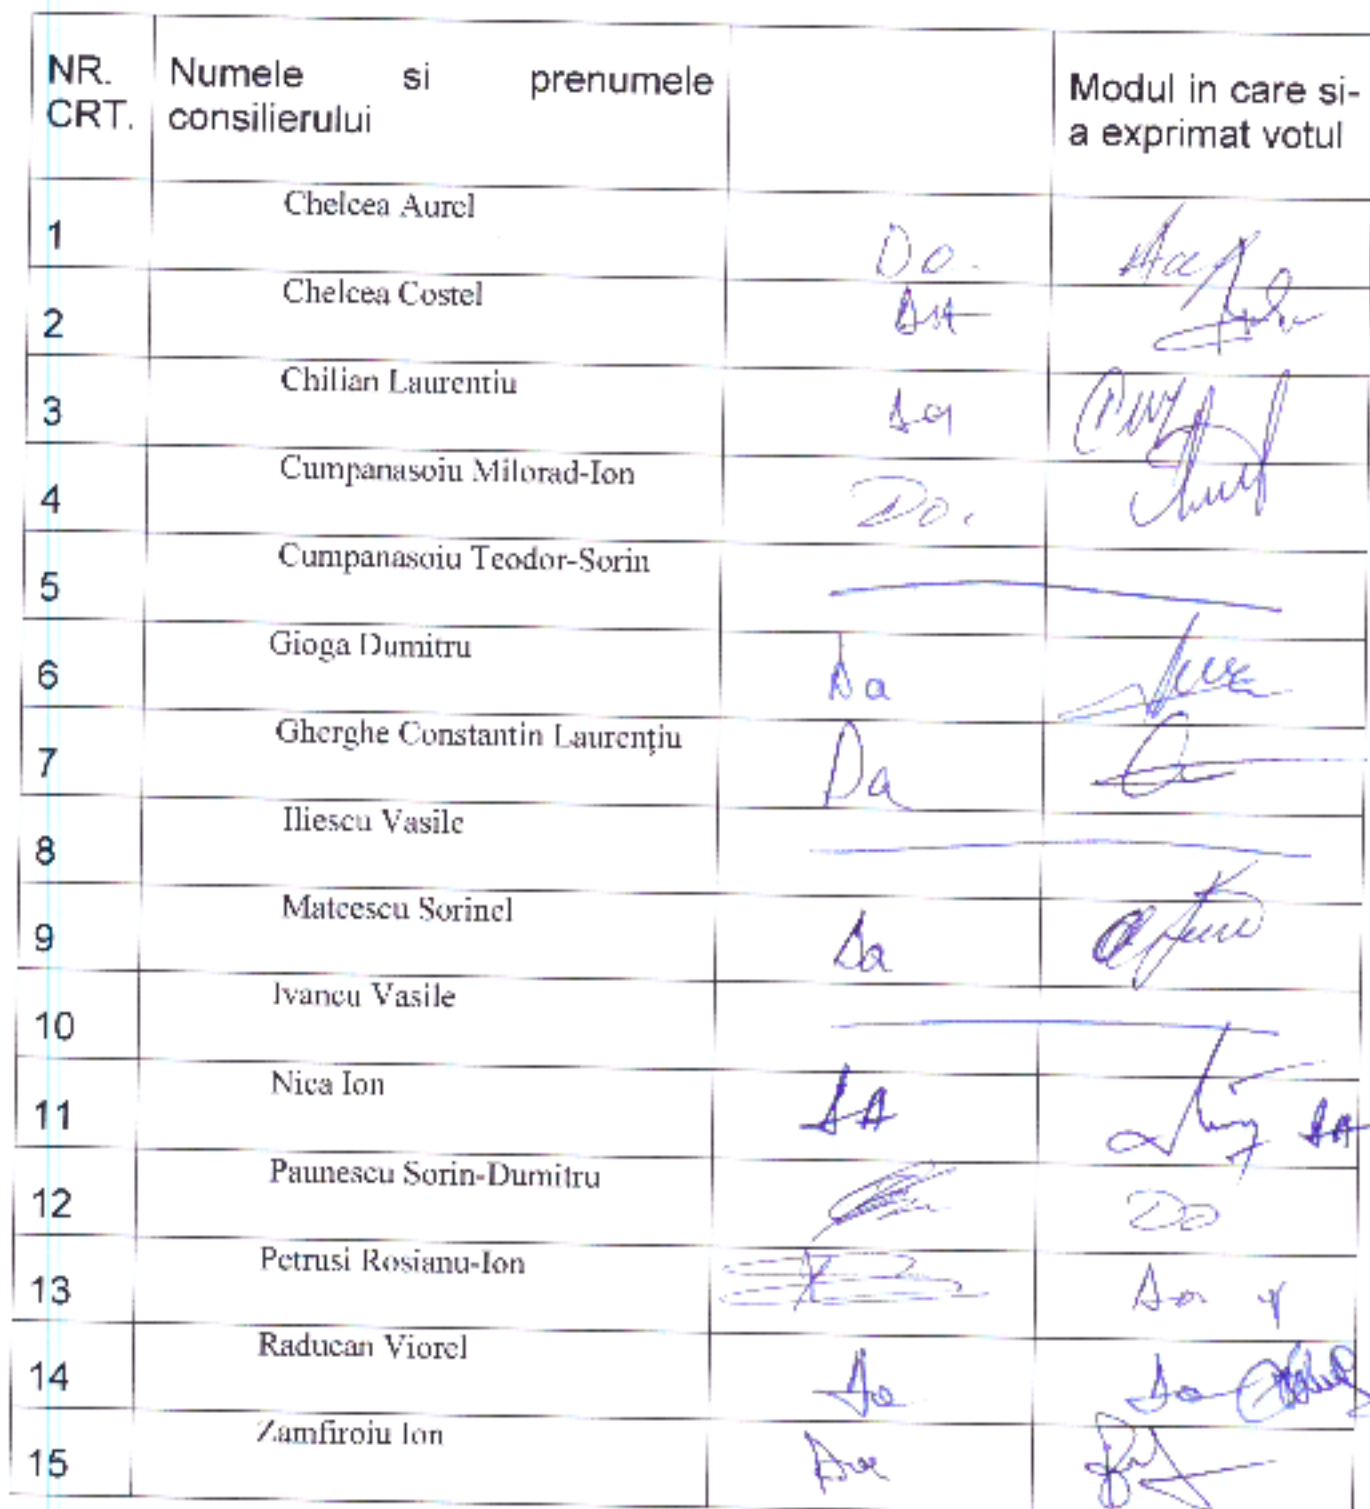 NR. CRT.
Numele si prenumele
consilierului
Modul in care si-
a exprimat votul
1 Chelcea Aurel Da.
2 Chelcea Costel DA
3 Chilian Laurentiu Da
4 Cumpanasoiu Milorad-Ion Da.
5 Cumpanasoiu Teodor-Sorin
6 Gioga Dumitru Da
7 Gherghe Constantin Laurenţiu Da
8 Iliescu Vasile
9 Mateescu Sorinel Da
10 Ivancu Vasile
11 Nica Ion DA DA
12 Paunescu Sorin-Dumitru Da
13 Petrusi Rosianu-Ion Da
14 Raducan Viorel Da Da
15 Zamfiroiu Ion Da